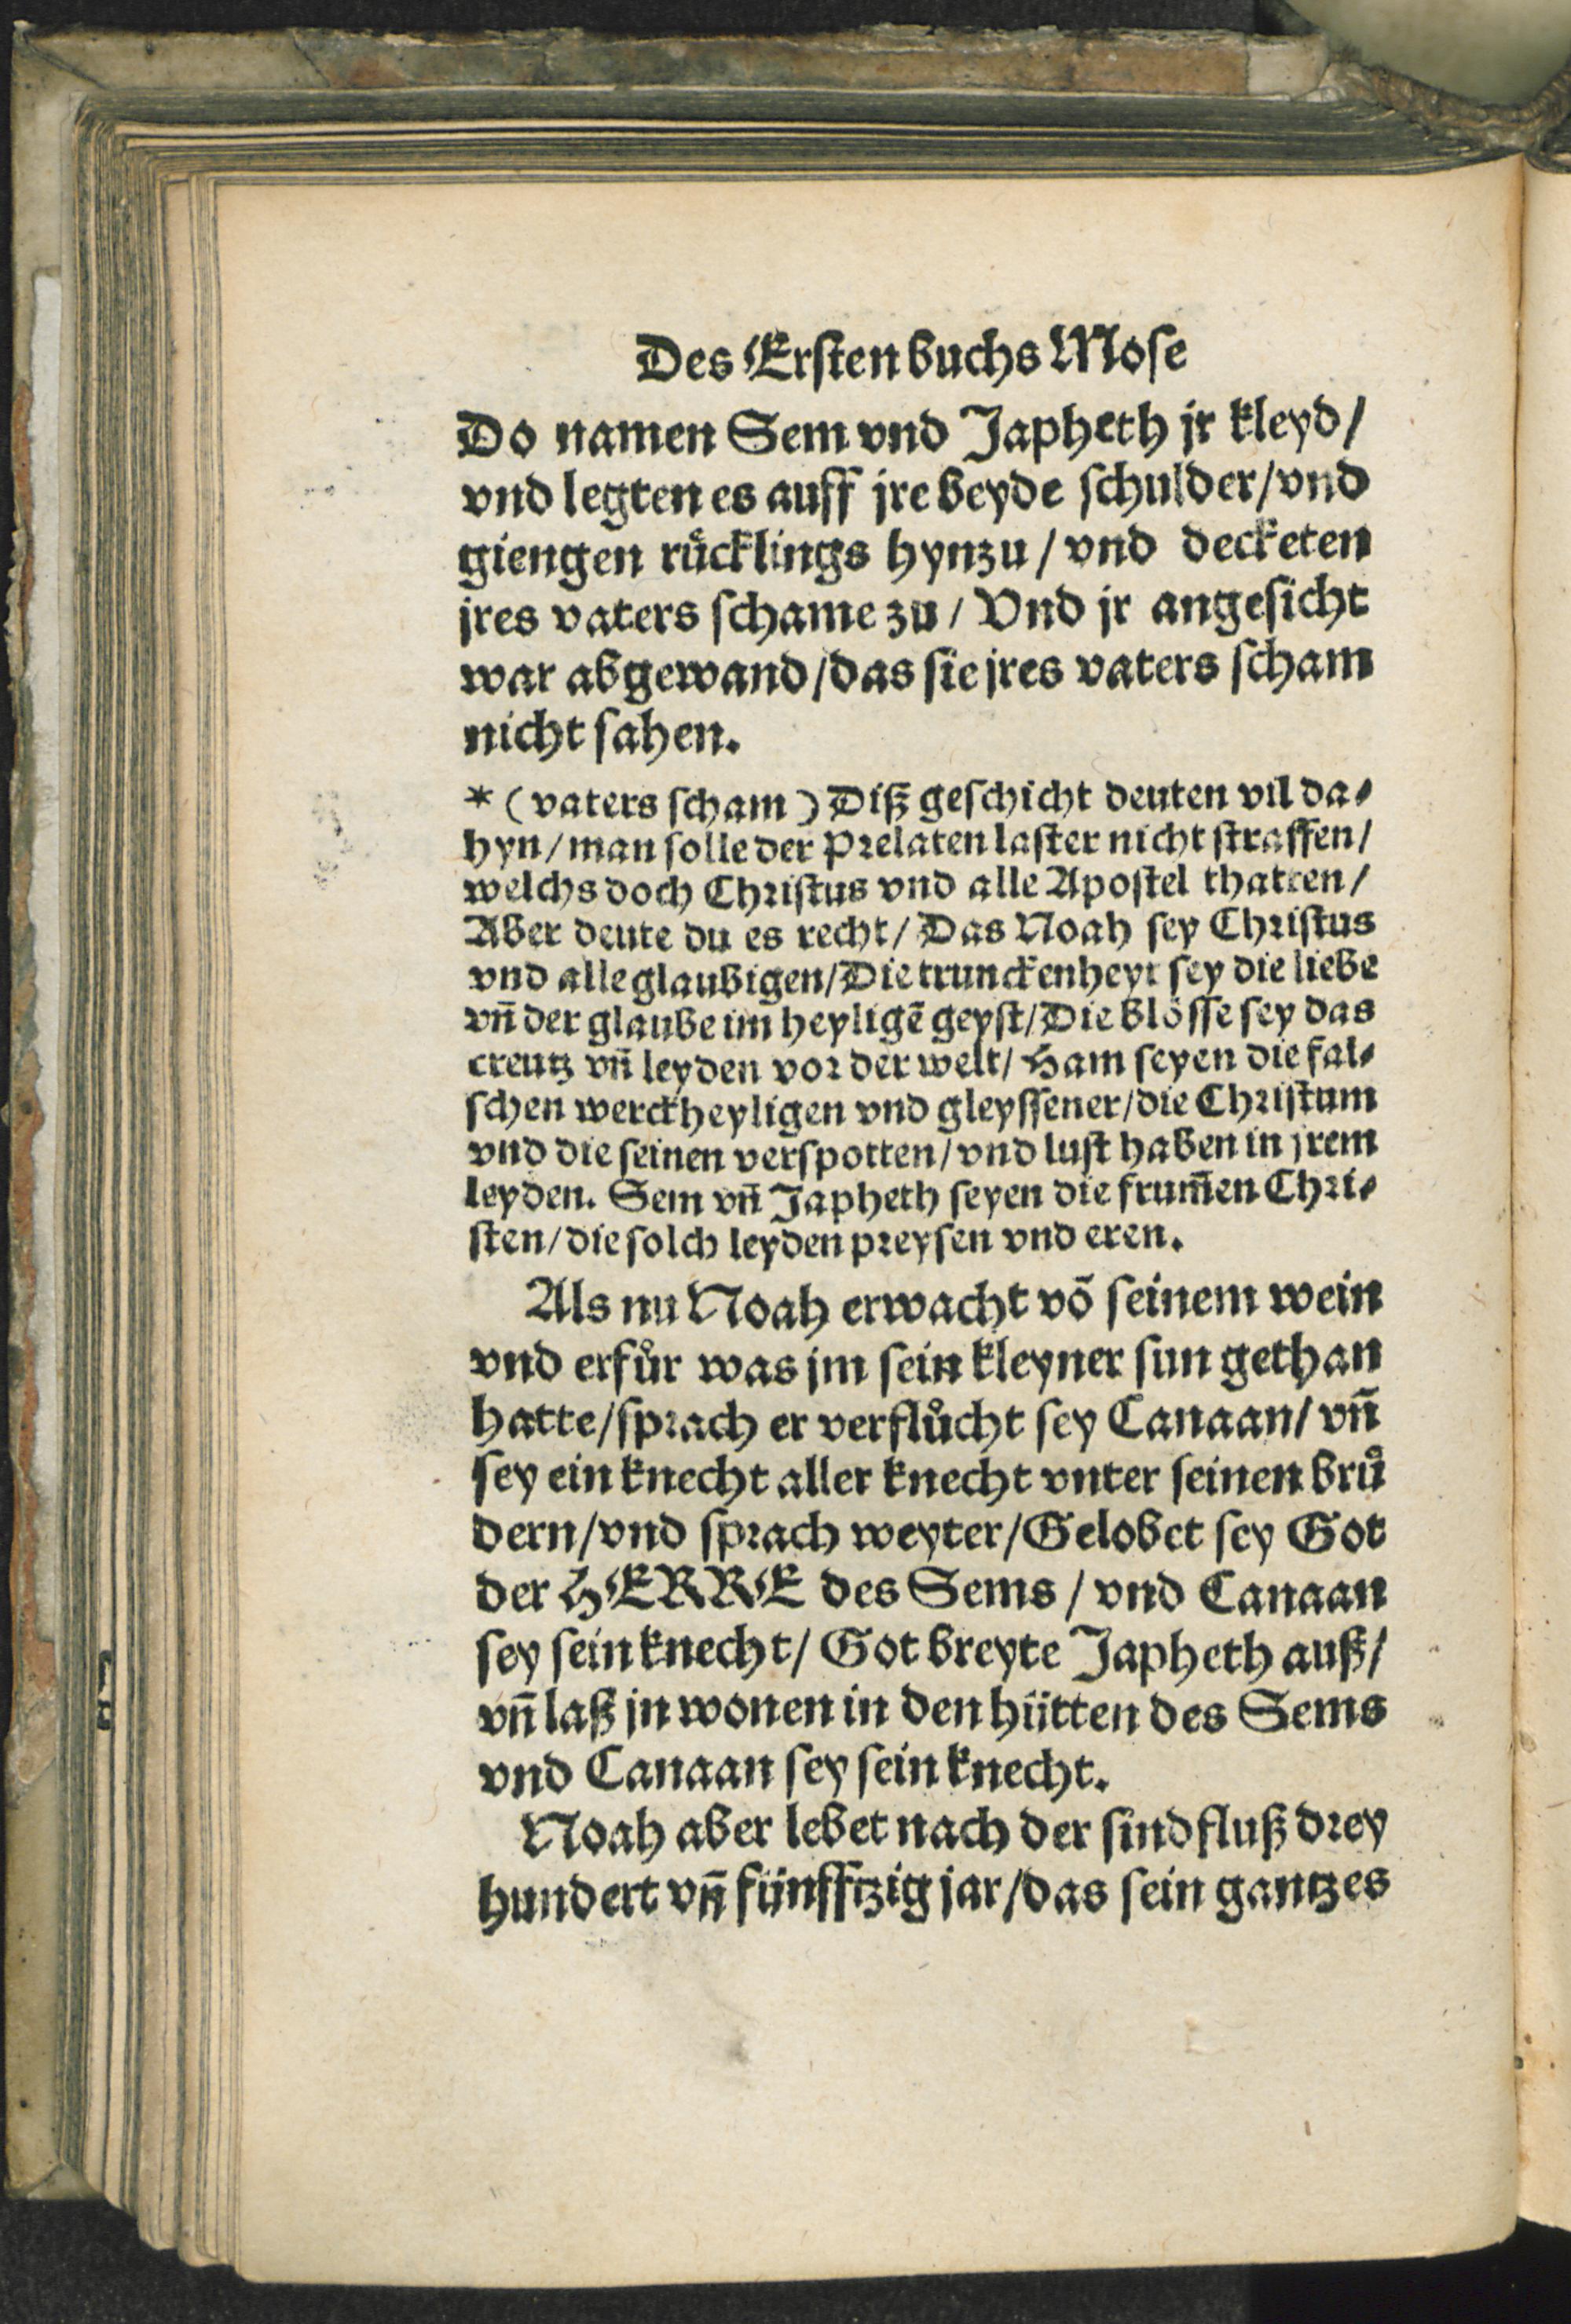 Des Ersten buchs Mose
Do namen Sem vnd Japheth jr kleyd/
vnd legten es auff jre beyde schulder/vnd
giengen ruͤcklings hynzu/vnd decketen
jres vaters schame zu/Vnd jr angesicht
war abgewand/das sie jres vaters scham
nicht sahen.
*(vaters scham) Diß geschicht deuten vil da⸗
hyn/man solle der Prelaten laster nicht straffen/
welchs doch Christus vnd alle Apostel thatten/
Aber deute du es recht/Das Noah sey Christus
vnd alle glaubigen/Die trunckenheyt sey die liebe
vñ der glaube im̃ heyligẽ geyst/Die blösse sey das
creutz vñ leyden vor der welt/Ham seyen die fal⸗
schen werckheyligen vnd gleyssener/die Christum
vnd die seinen verspotten/vnd lust haben in jrem
leyden. Sem vñ Japheth seyen die frum̃en Chri⸗
sten/die solch leyden preysen vnd eren.
Als nu Noah erwacht võ seinem wein
vnd erfuͦr was jm sein kleyner sun gethan
hatte/sprach er verfluͦcht sey Canaan/vñ
sey ein knecht aller knecht vnter seinen bruͤ
dern/vnd sprach weyter/Gelobet sey Got
der HERRE des Sems/vnd Canaan
sey sein knecht/Got breyte Japheth auß/
vñ laß jn wonen in den hütten des Sems
vnd Canaan sey sein knecht.
Noah aber lebet nach der sindfluß drey
hundert vñ fünfftzig jar/das sein gantzes